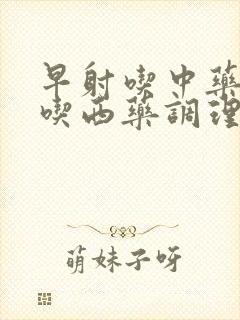 早射喫中藥
喫西藥調理
萌妹子呀